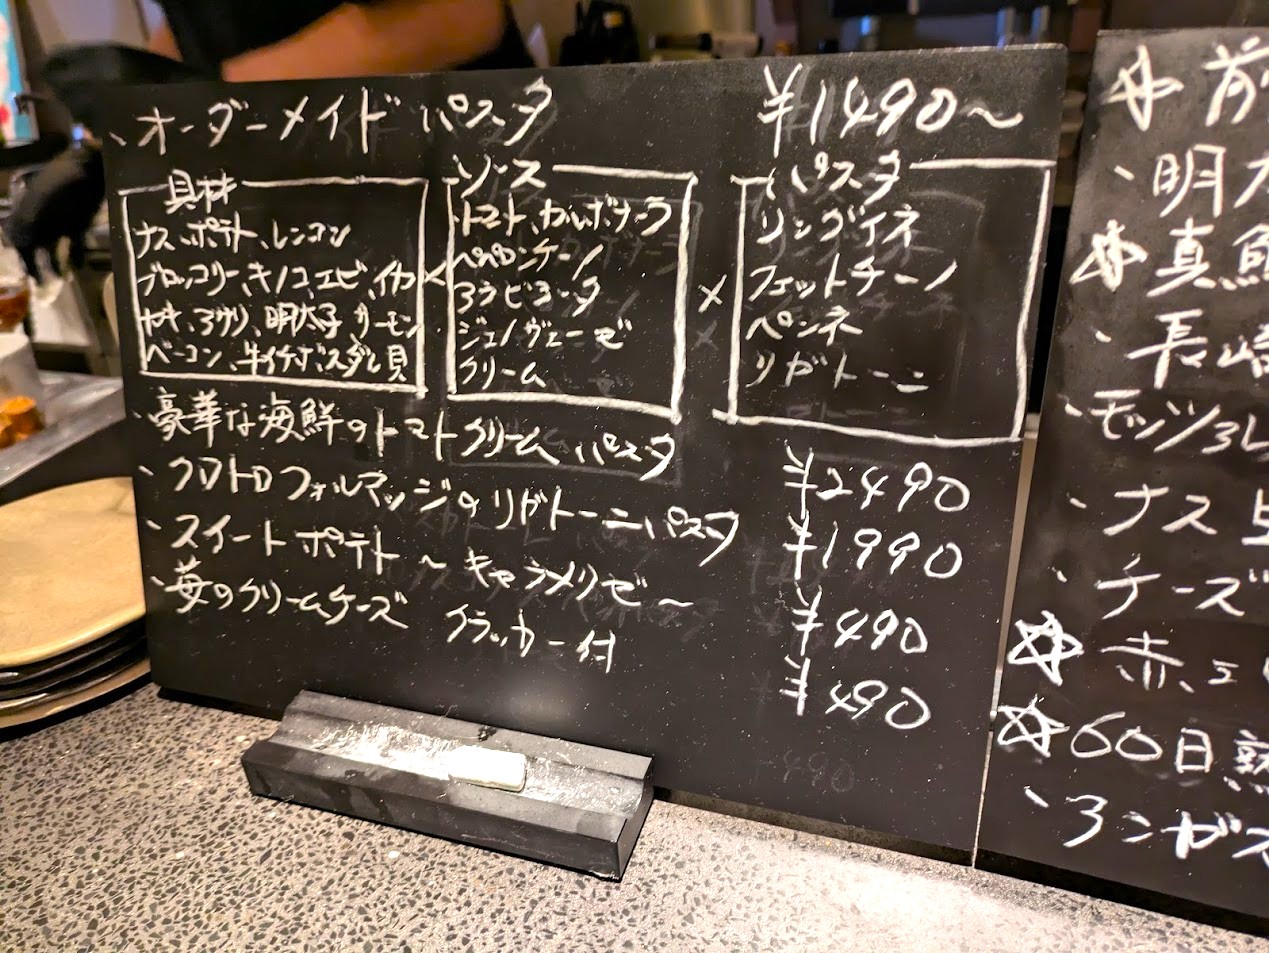 、オーダーメイド パスタ ¥1490〜
具材
ナス、ポテト、レンコン
ブロッコリー、キノコ、エビ、イカ
カキ、アサリ、明太子、サーモン
ベーコン、牛スヂボス
貝
×
ソース
トマト、カルボナーラ
ペペロンチーノ
アラビヨータ
ジェノヴェーゼ
クリーム
×
パスタ
リングイネ
フェットチーノ
ペンネ
リガトーニ
、豪華な海鮮のトマトクリームパスタ ¥2490
、クワトロフォルマッジのリガトーニパスタ ¥1990
、スイートポテト 〜キャラメリゼ〜 ¥490
、苺のクリームチーズ クラッカー付 ¥490
☆前
、明太
☆真
、長崎
、モッツァレ
、ナス
、チーズ
☆赤
☆60日熟
、アンガス